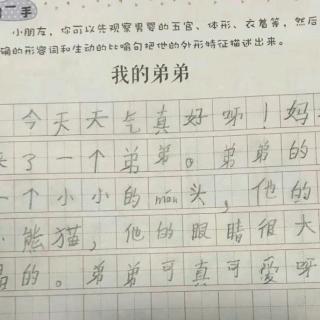 手
小朋友，你可以先观察男婴的五官、体形、衣着等，然后
确的形容词和生动的比喻句把他的外形特征描述出来。
我的弟弟
今天天气真好呀！妈
了一个弟弟。弟弟的
一个小小的mán头，他的
熊猫，他的眼睛很大
的。弟弟可真可爱呀